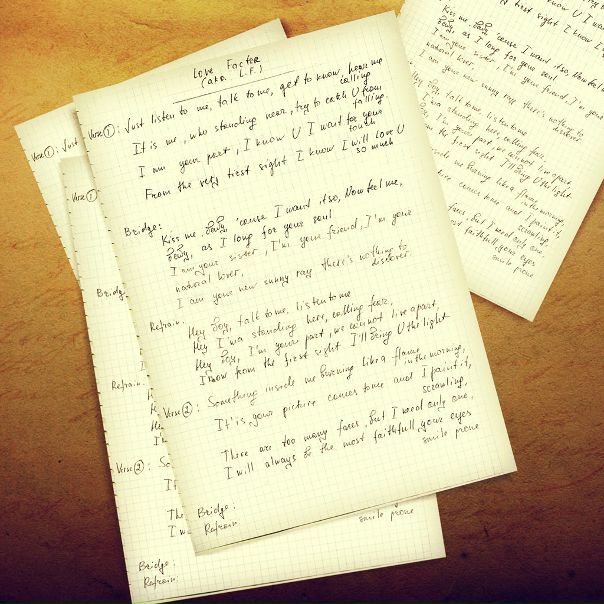 Love Factor
(aka L.F.)
Verse ①: Just listen to me, talk to me, get to know, hear me
calling
It is me, who standing near, try to catch U from
falling.
I am your part, I know U I want for your
touch
From the very first sight I know I will love U
so much
Bridge:
Kiss me, baby, 'cause I want it so, Now feel me,
baby, as I long for your soul
I am your sister, I'm your friend, I'm your
natural lover,
I am your new sunny ray there's nothing to
discover.
Refrain:
Hey boy, talk to me, listen to me
Hey I'm a standing here, calling fear,
Hey boy, I'm your part, we can not live apart,
I know from the first sight I'll bring U the light
Verse ②: Something inside me burning like a flame
in the morning,
It's your picture comes to me and I paint it,
scrawling,
There are too many faces, but I need only one,
I will always be the most faithfull, your eyes
smile prone
Bridge:
Refrain:
Verse ①: Just
Verse ①
Bridge:
Refrain:
Hey
Hey
Hey
Verse ②: So
If
The
I w
smile prone
Bridge:
Refrain:
first sight I know I
Kiss me, baby, 'cause I want it so, Now feel me
baby, as I long for your soul
I am your sister, I'm your friend, I'm your
natural lover,
I am your new sunny ray there's nothing to
discover
boy, talk to me, listen to me
standing here, calling fear,
I'm your part, we can not live apart
from the first sight I'll bring U the light
inside me burning like a flame
in the morning,
picture comes to me and I paint it,
scrawling,
faces, but I need only one,
most faithfull, your eyes
smile prone